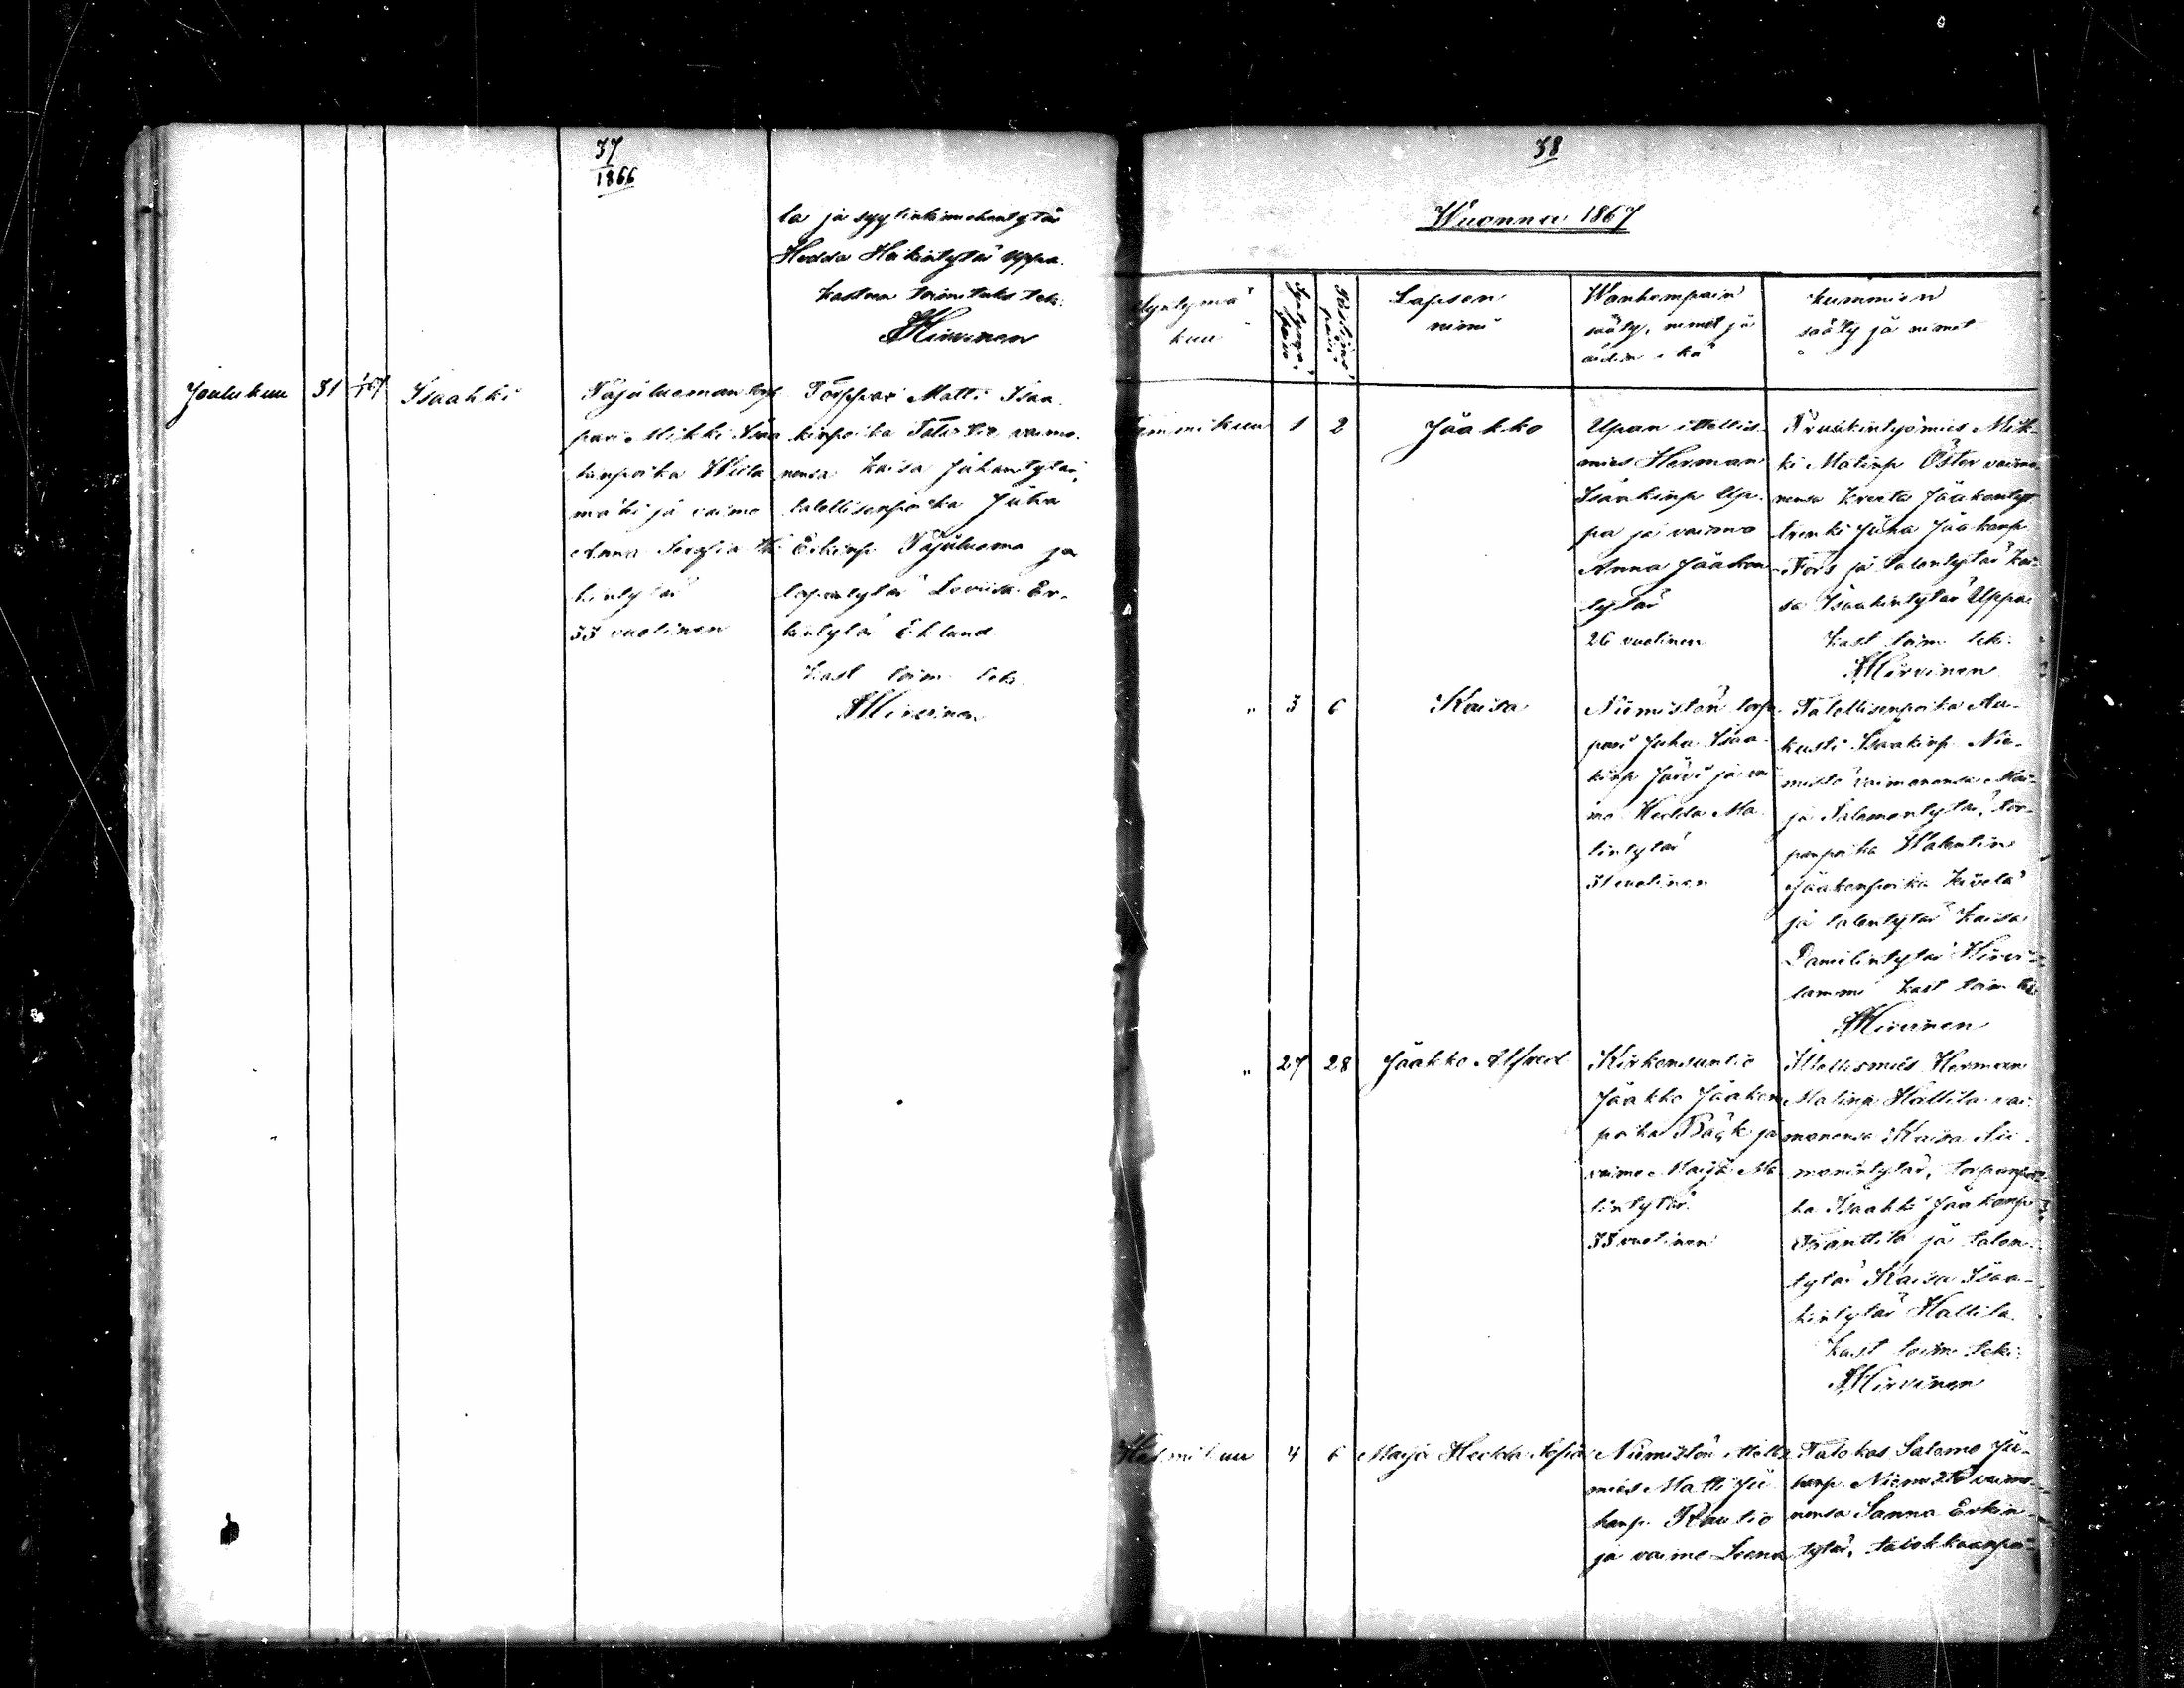 37
1866
la ja syytinkimiehentytär
Hedda Heikintytär Uppa.
Kasteen toimituks teki
Hirvinen
Joulukuu 31 1/1 67 Isaahki
Täjäluoman torp
pari Mikki Isaa
kinpoika Wiila
mäki ja vaimo
Anna Serafia
kintytär
33 vuotinen
Torppari Matti Isaa
kinpoika vaimo
nensa Kaisa Juhantytär,
talollisenpoika Juha
Erkinp Täjäluoma ja
Loviisa Er-
kintytär Eklund
Kast toim teki
Hirvinen
38
Wuonna 1867
Syntymä
kuu
Syntymä
päivä
Ristimä
päivä
Lapsen
nimi
Wanhempain
sääty, nimet ja
äidin ikä
Kummien
sääty ja nimet
Tammikuu 1 2 Jäähko
Upan ittellis-
mies Herman
Isaakinp Up-
pa ja vaimo
Anna Jaakon
tytär
26 vuotinen
Mik-
ki Matinp Öster vaimo
nensa Kreeta Jaakontyt
trenki Juha Jaakonp
Fors ja talontytär Kai-
sa Isaakintytär Uppa
Kast toim teki
Hirvinen
" 3 6 Kaisa
Niemistön torp-
pari Juha Isaa-
kinp Järvi ja vai
mo Hedda Ma
tintytär
31 vuotinen
Talollisenpoika Au-
kusti Isaakinp Nie-
mistö vaimonensa Mai-
ja Salomontytär, tor-
panpoika Walentin
Jaakonpoika Kivelä
ja talontytär Kaisa
Danielintytär Hirvi-
lammi Kast toim teki
Hirvinen
" 27 28 Jaakko Alfred
Kirkonsuntio
Jaakko Jaakon
poika Bäck ja
vaimo Maija Ma
tintytär
33 vuotinen
Itellismies Herman
Matinp Hallila vai
monensa Kaisa Sii-
monintytär, torpanpoi-
ka Isaakki Jaakonp
Anttila ja talon
tytär Kaisa Isaa-
kintytär Hallila
Kast toim teki
Hirvinen
Helmikuu 4 6 Maija Hedda Sofia
Niemistön ittellis
mies Matti Ju
hanp. Rautio
ja vaimo Leena
Talokas Salomo Ju-
hanp. Niemistö vaimo-
nensa Sanna Erkin-
tytär, talokkaanpoi-